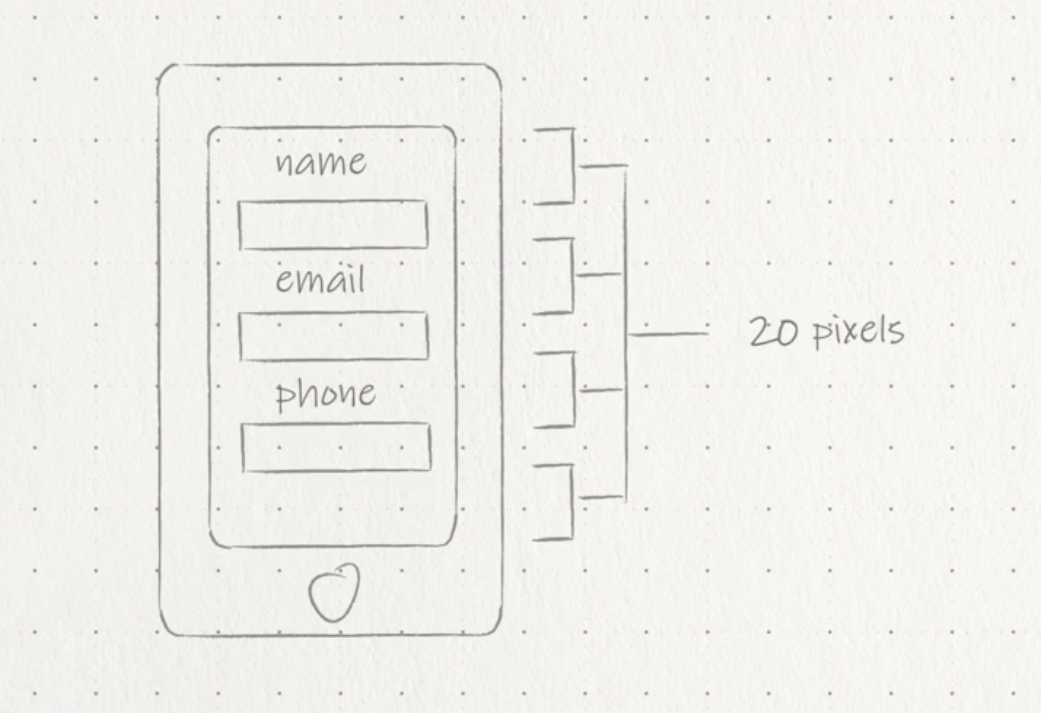 name
email
phone
20 pixels